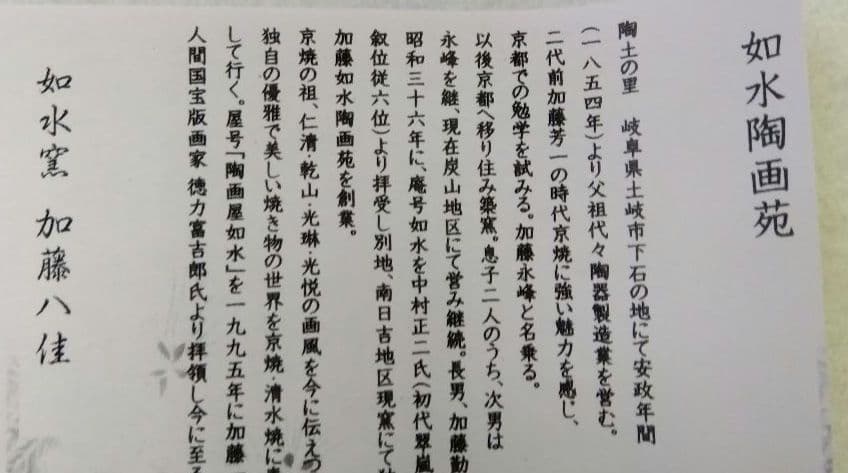 如水陶画苑
陶土の里 岐阜県土岐市下石の地にて安政年間
(一八五四年)より父祖代々陶器製造業を営む。
二代前加藤芳一の時代京焼に強い魅力を感じ、
京都での勉学を試みる。加藤永峰と名乗る。
以後京都へ移り住み築窯。息子二人のうち、次男は
永峰を継、現在炭山地区にて営み継続。長男、加藤勤
昭和三十六年に、庵号如水を中村正二氏(初代翠嵐
叙位従六位)より拝受し別地、南日吉地区現窯にて独
加藤如水陶画苑を創業。
京焼の祖、仁清・乾山・光琳・光悦の画風を今に伝えつ
独自の優雅で美しい焼き物の世界を京焼・清水焼に
して行く。屋号「陶画屋如水」を一九九五年に加藤
人間国宝版画家 徳力富吉郎氏より拝領し今に至る
如水窯 加藤八佳